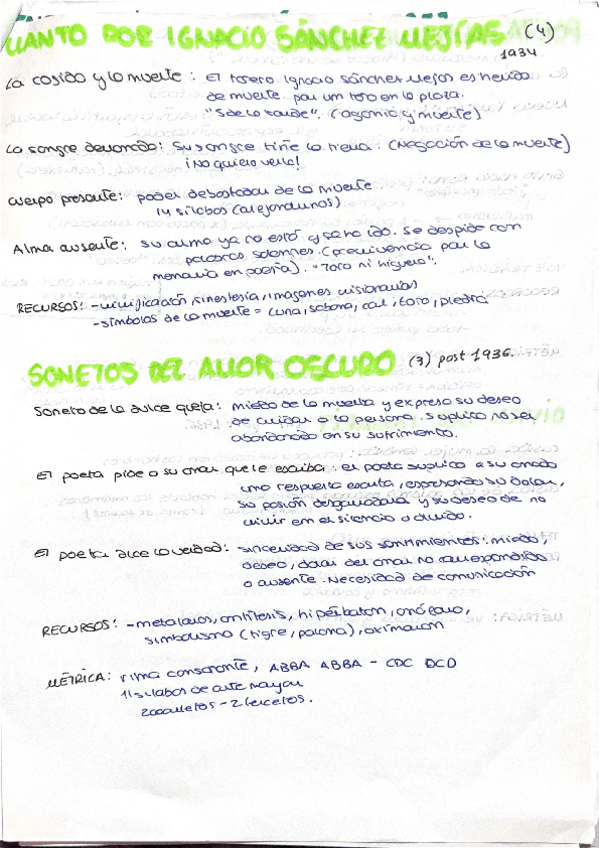 LLANTO POR IGNACIO SÁNCHEZ MEJÍAS (4)
1934
La cogida y la muerte: El torero Ignacio Sánchez Mejías es herido
de muerte por un toro en la plaza.
"5 de la tarde". (agonía y muerte)
La sangre derramada: Su sangre tiñe la tierra. (Negación de la muerte)
¡No quiero verla!
Cuerpo presente: poder devastador de la muerte
14 sílabas (alejandrinos)
Alma ausente: su alma ya no está y se ha ido. Se despide con
palabras solemnes. (pervivencia por la
memoria en poesía). "Toro ni higuera".
RECURSOS: -vivificación, sinestesia, imágenes visionarias
-símbolos de la muerte = luna, sábana, cal, toro, piedra
SONETOS DEL AMOR OSCURO (3) post 1936.
Soneto de la dulce queja: miedo de la muerte y expresa su deseo
de cuidar a la persona. Suplica no ser
abandonado en su sufrimiento.
El poeta pide a su amor que le escriba: el poeta suplica a su amado
una respuesta escrita, expresando su dolor,
su pasión desgarradora y su deseo de no
vivir en el silencio o olvido.
El poeta dice la verdad: sinceridad de sus sentimientos: miedo,
deseo, dolor del amor no correspondido
o ausente. Necesidad de comunicación
RECURSOS: -metáforas, antítesis, hipérbaton, anáfora,
simbolismo (tigre, paloma), oxímoron
MÉTRICA: rima consonante, ABBA ABBA - CDC DCD
11 sílabas de arte mayor
2 cuartetos - 2 tercetos.